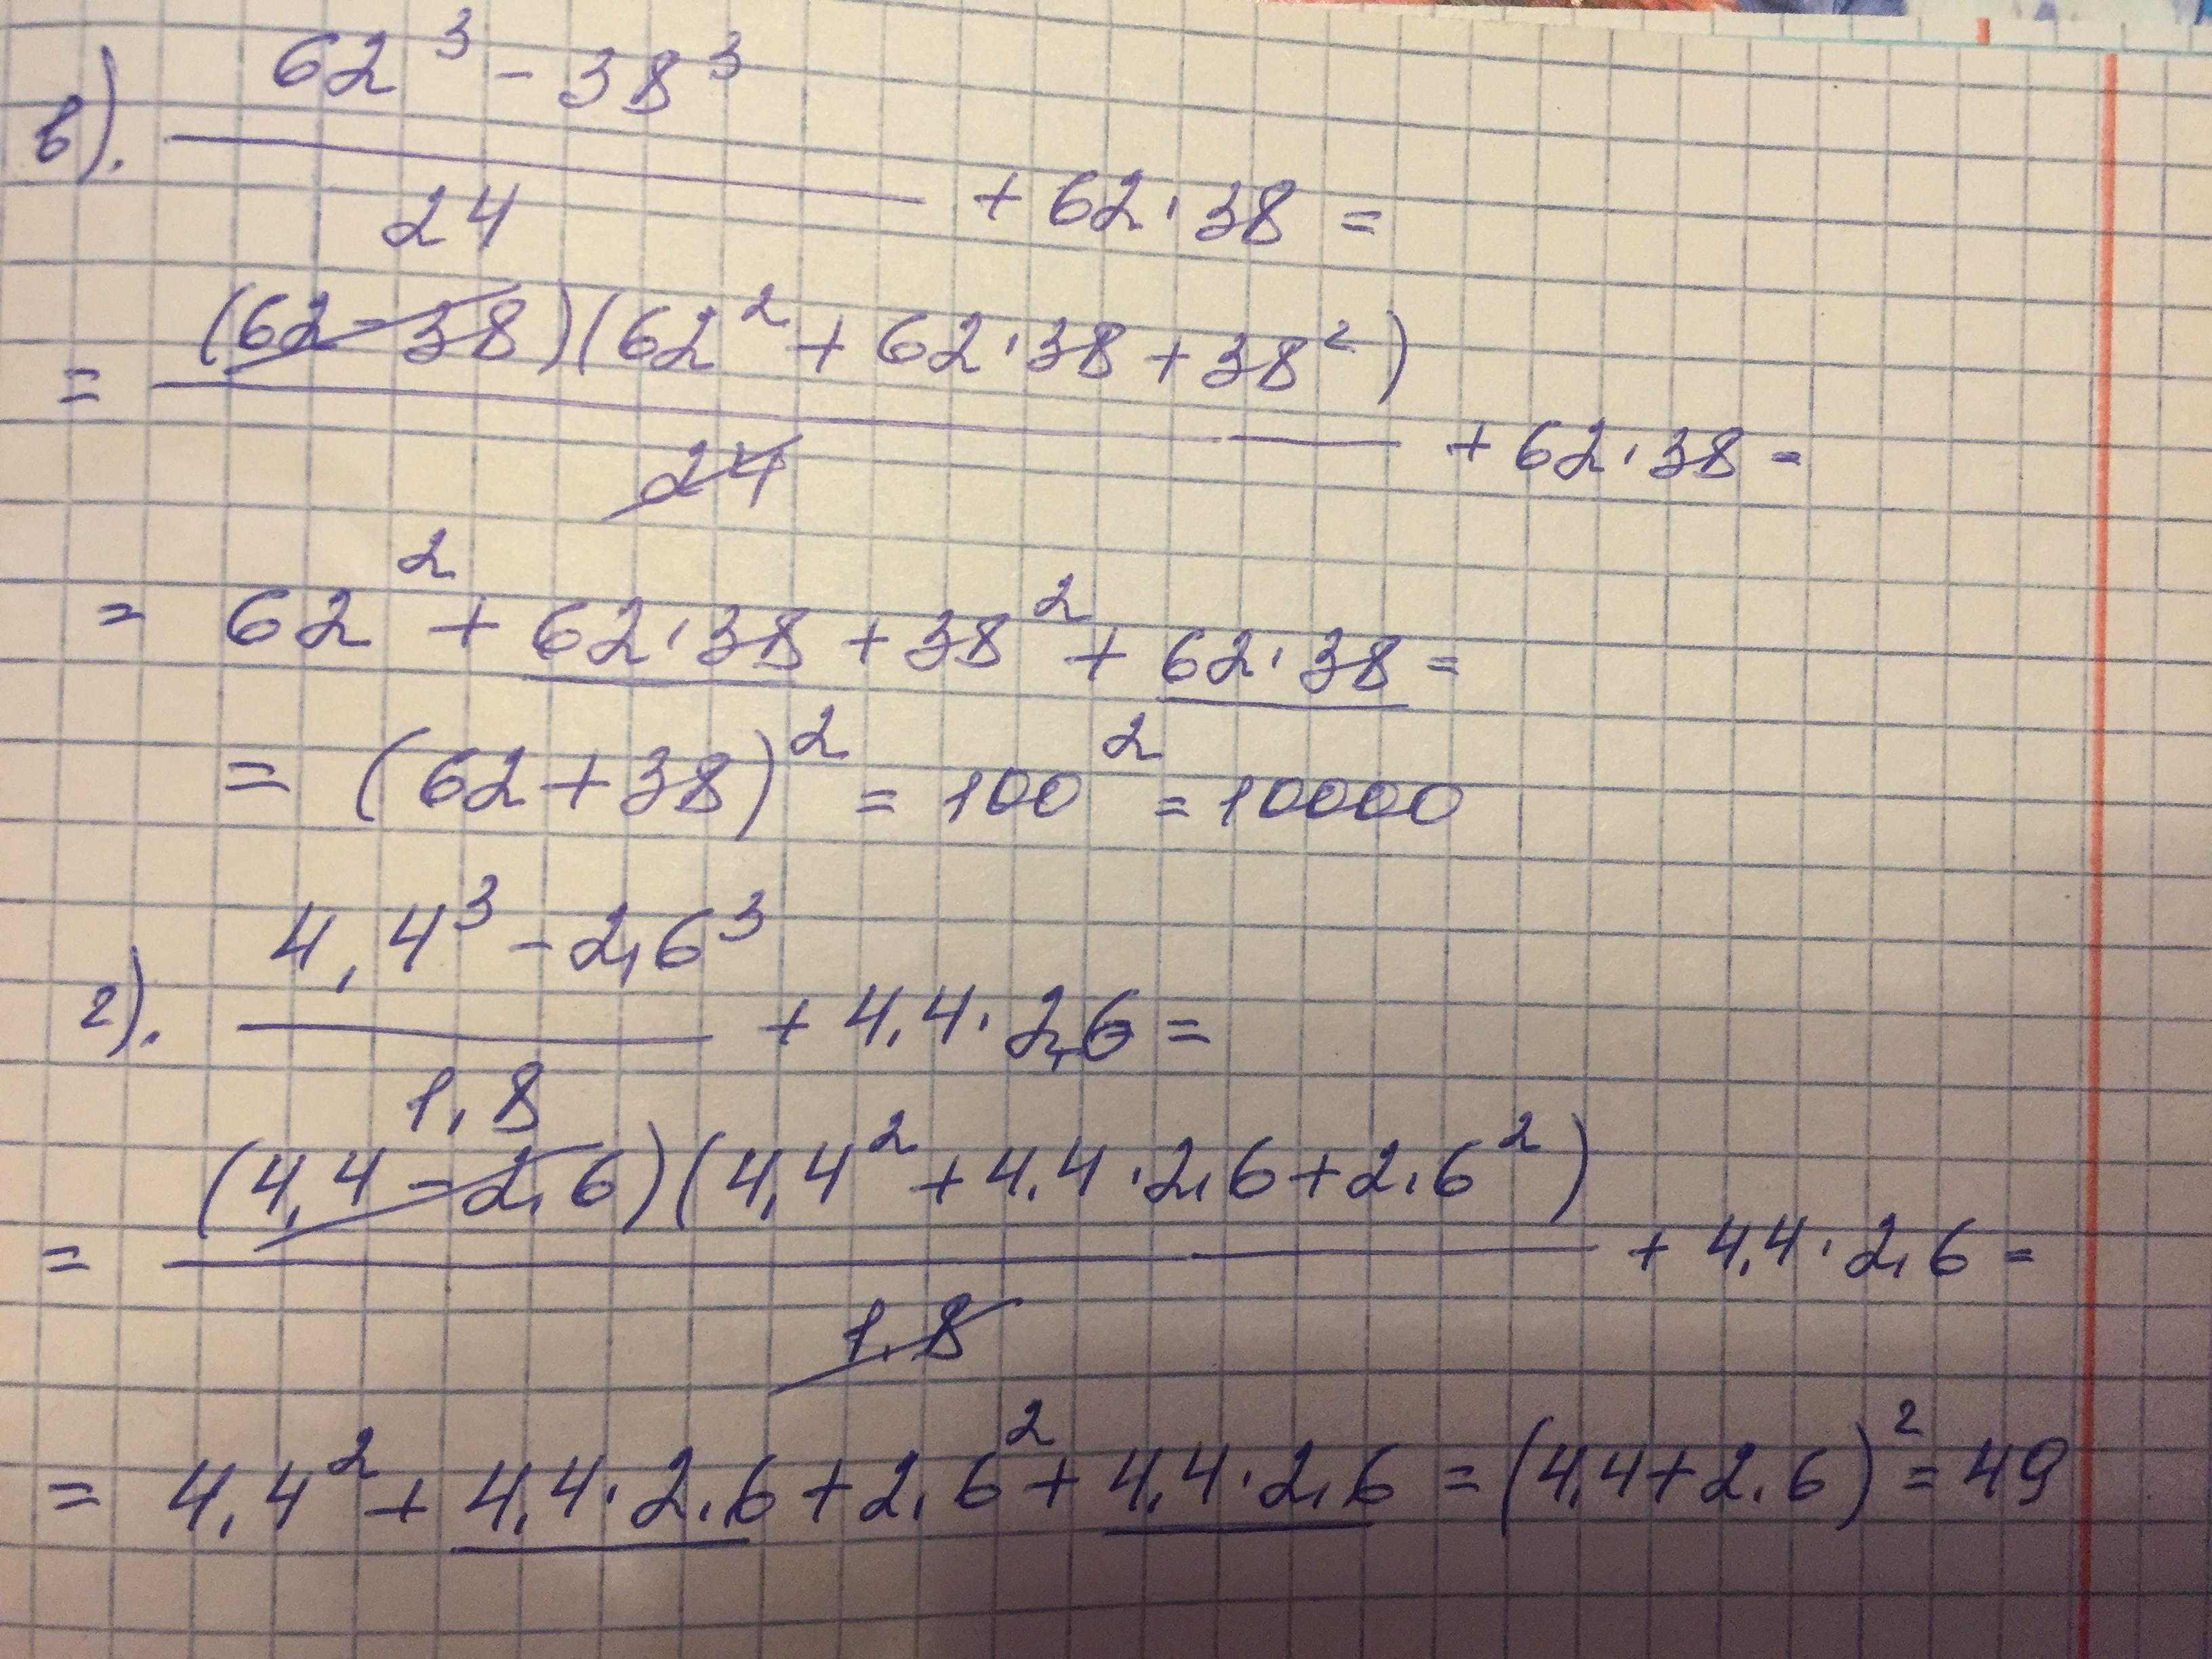 в). (62³ - 38³)/24 + 62·38 =
= ((62-38)(62² + 62·38 + 38²))/24 + 62·38 =
= 62² + 62·38 + 38² + 62·38 =
= (62+38)² = 100² = 10000
г). (4,4³ - 2,6³)/1,8 + 4,4·2,6 =
= ((4,4-2,6)(4,4² + 4,4·2,6 + 2,6²))/1,8 + 4,4·2,6 =
= 4,4² + 4,4·2,6 + 2,6² + 4,4·2,6 = (4,4+2,6)² = 49